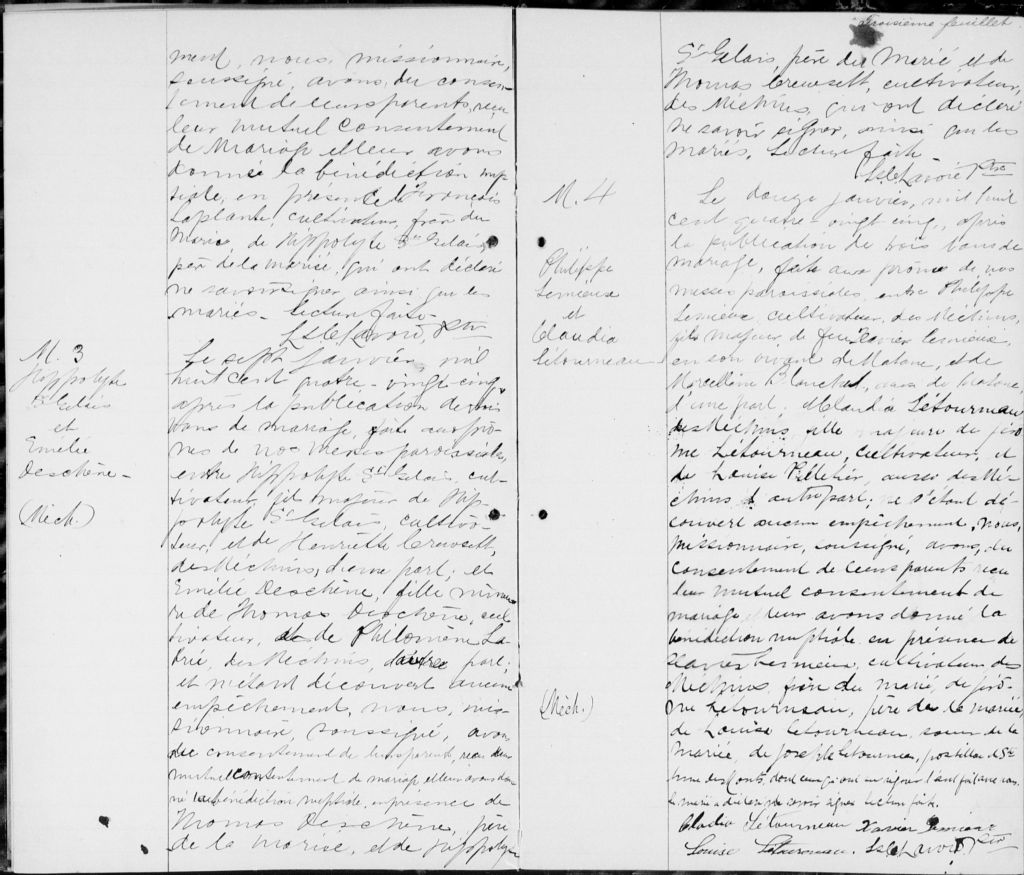 ment, nous, missionnaire,
soussigné, avons, du consen-
tement de leurs parents, reçu
leur mutuel consentement
de mariage et leur avons
donné la bénédiction nup-
tiale, en présence de François
Laplante, cultivateur, frère du
marié, de Hippolyte St Gelais,
père de la mariée, qui ont déclaré
ne savoir signer ainsi que les
mariés. Lecture faite.
Ptre
M. 3
Hippolyte
St Gelais
et
Emélie
Deschêne -
(Méch.)
Le sept Janvier, mil
huit cent quatre-vingt cinq,
après la publication de trois
bans de mariage, faite aux prô-
nes de nos messes paroissiales,
entre Hippolyte St Gelais, cul-
tivateur, fils majeur de Hip-
polyte St Gelais, cultiva-
teur, et de Henriette
des Méchins, d'une part; et
Emélie Deschêne, fille mineu-
re de Thomas Deschêne, cul-
tivateur, et de Philomène La-
brie, des Méchins, d'autre part;
et n'étant découvert aucun
empêchement, nous, mis-
sionnaire, soussigné, avons
du consentement de leurs parents, reçu leur
mutuel consentement de mariage et leur avons don-
né la bénédiction nuptiale, en présence de
Thomas Deschêne, père
de la mariée, et de Hippolyte
Troisième feuillet
St Gelais, père du marié et de
Thomas cultivateur,
des Méchins, qui ont déclaré
ne savoir signer, ainsi que les
mariés. Lecture faite.
Ptre
M. 4
Philippe
Lemieux
et
Claudia
Létourneau
(Méch.)
Le douze janvier, mil huit
cent quatre vingt cinq, après
la publication de trois bans de
mariage, faite aux prônes de nos
messes paroissiales, entre Philippe
Lemieux cultivateur, des Méchins,
fils majeur, de feu Xavier Lemieux,
en son vivant de Matane, et de
Marcelline Blanchet, de Matane,
d'une part; et Claudia Létourneau
des Méchins, fille majeure de Jérô-
me Létourneau, cultivateur, et
de Louise Pelletier, aussi des Mé-
chins d'autre part; ne s'étant dé-
couvert aucun empêchement, nous,
missionnaire, soussigné, avons, du
consentement de leurs parents reçu
leur mutuel consentement de
mariage et leur avons donné la
bénédiction nuptiale en présence de
Xavier Lemieux, cultivateur des
Méchins, frère du marié, de Jérô-
me Létourneau, père de la mariée,
de Louise Létourneau, soeur de la
mariée, de Joseph Létourneau, postillon de Ste
Lecture faite.
Claudia Létourneau Xavier Lemieux
Louise Létourneau. Ptre